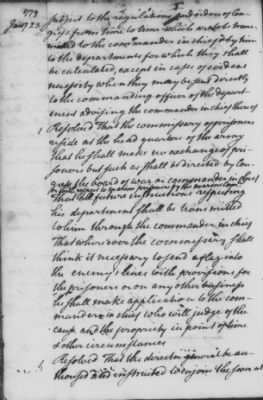 1779
Jany 23
subject to the regulations and orders of Con
gress from time to time which are to be trans
mitted to the commander in chief & by him
to the departments for which they shall
be calculated, except in cases of evident
necessity when they may be sent directly
to the commanding officer of the depart
ment advising the commander in chief thereof
Resolved That the commissary of prisoners
reside at the head quarters of the army
that he shall make no exchange of pri-
soners but such as shall be directed by Con
gress the board of war or commander in chief
or with respect to marine prisoners by the marine Com
That all future instructions respecting
his department shall be transmitted
to him through the commander in chief
That whenever the commissary shall
think it necessary to send a flag into
the enemy's lines with provisions for
the prisoners or on any other business
he shall make application to the com-
mander in chief who will judge of the
cause and the propriety in point of time
& other circumstances
Resolved That the director general be au-
thorised and instructed to enjoin the several